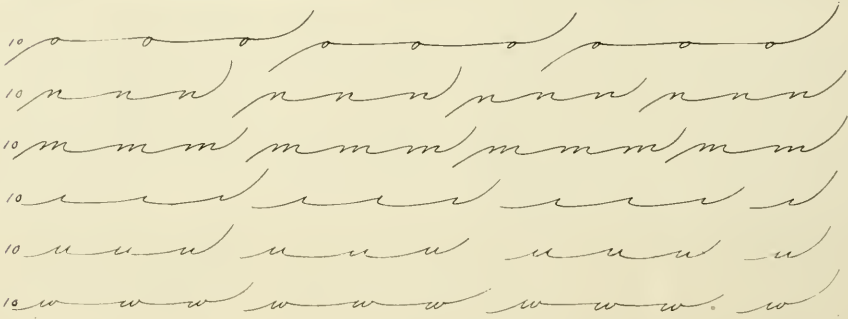 10 o o o o o o o o o
10 n n n n n n n n n n n n
10 m m m m m m m m m m m
10 ı ı ı ı ı ı ı ı ı ı
10 u u u u u u u u u u
10 w w w w w w w w w w